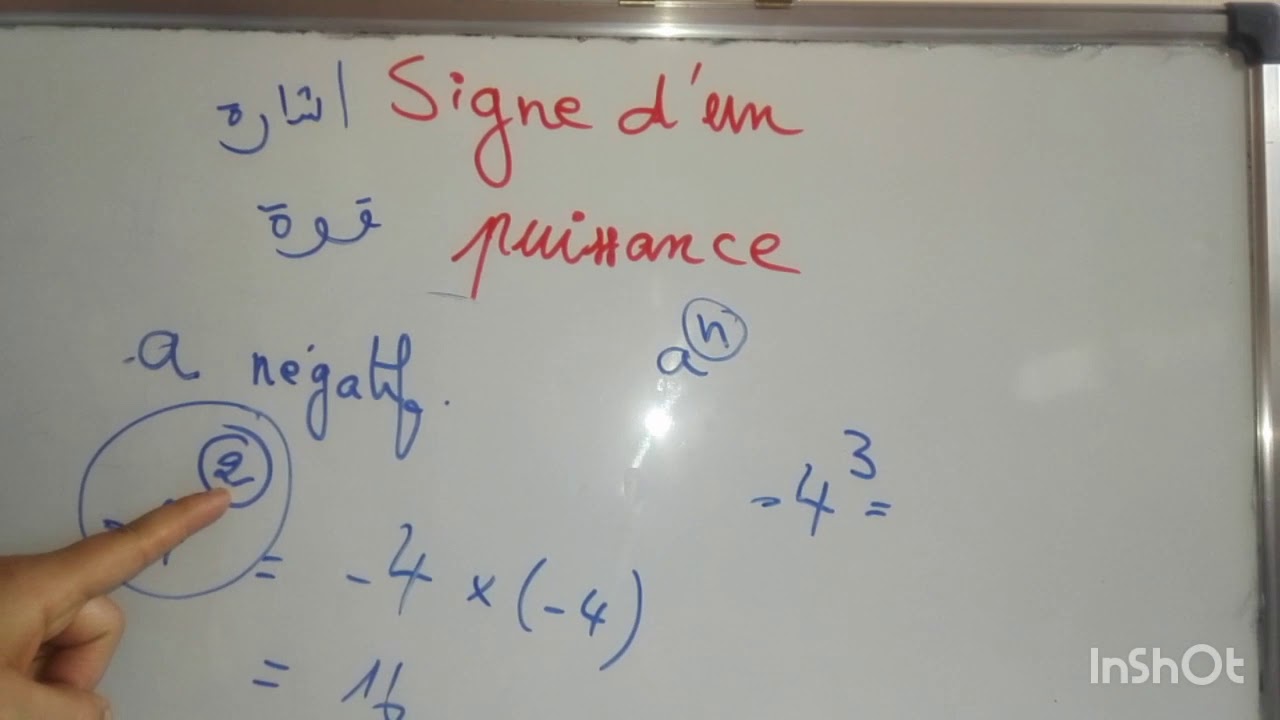 اشارة Signe d'un
قوة puissance
a négatif.
aⁿ
-4² = -4 × (-4)
= 16
-4³ =
InShOt